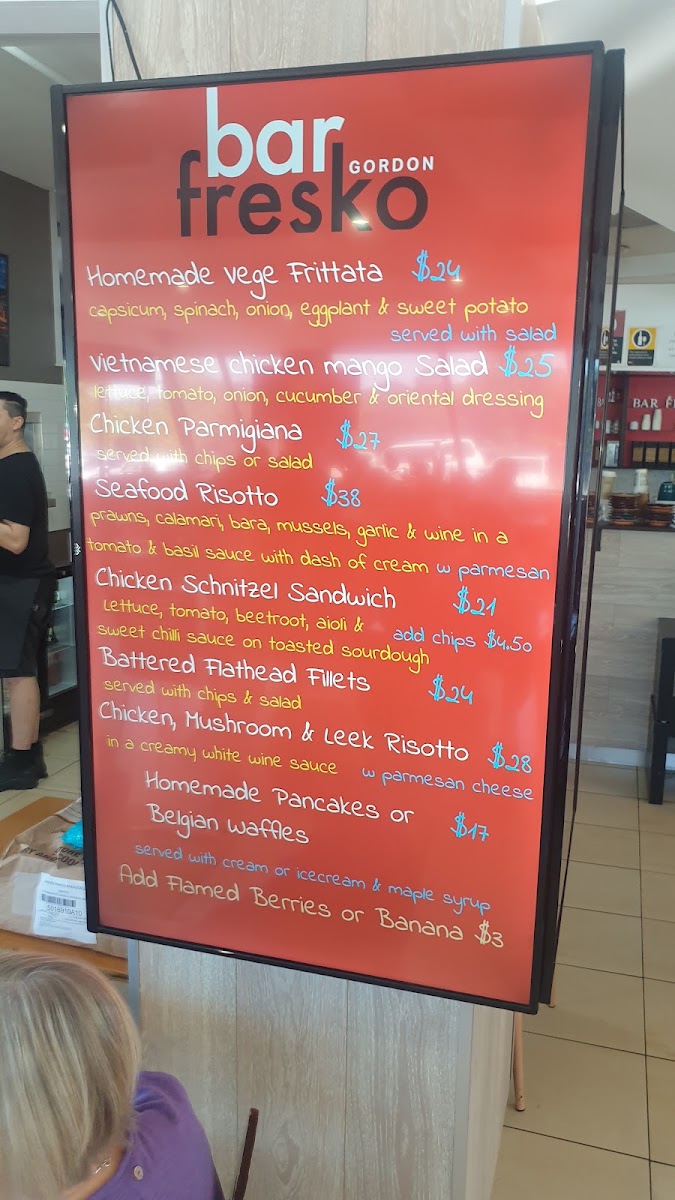 bar
fresko GORDON
Homemade vege Frittata $24
capsicum, spinach, onion, eggplant & sweet potato
served with salad
Vietnamese chicken mango Salad $25
lettuce, tomato, onion, cucumber & oriental dressing
Chicken Parmigiana $27
served with chips or salad
Seafood Risotto $38
prawns, calamari, bara, mussels, garlic & wine in a
tomato & basil sauce with dash of cream w parmesan
Chicken Schnitzel Sandwich $21
Lettuce, tomato, beetroot, aioli & add chips $4.50
sweet chilli sauce on toasted sourdough
Battered Flathead Fillets $24
served with chips & salad
Chicken, Mushroom & Leek Risotto $28
in a creamy white wine sauce w parmesan cheese
Homemade Pancakes or
Belgian Waffles $17
served with cream or icecream & maple syrup
Add Flamed Berries or Banana $3
BAR
5018910A10